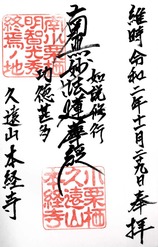 維時 令和二年十一月二九日 奉拝
如説修行
南無妙法蓮華経
功徳甚多
久遠山 本経寺
南小栗栖
明智光秀
終焉ノ地
小栗栖
久遠山
本経寺